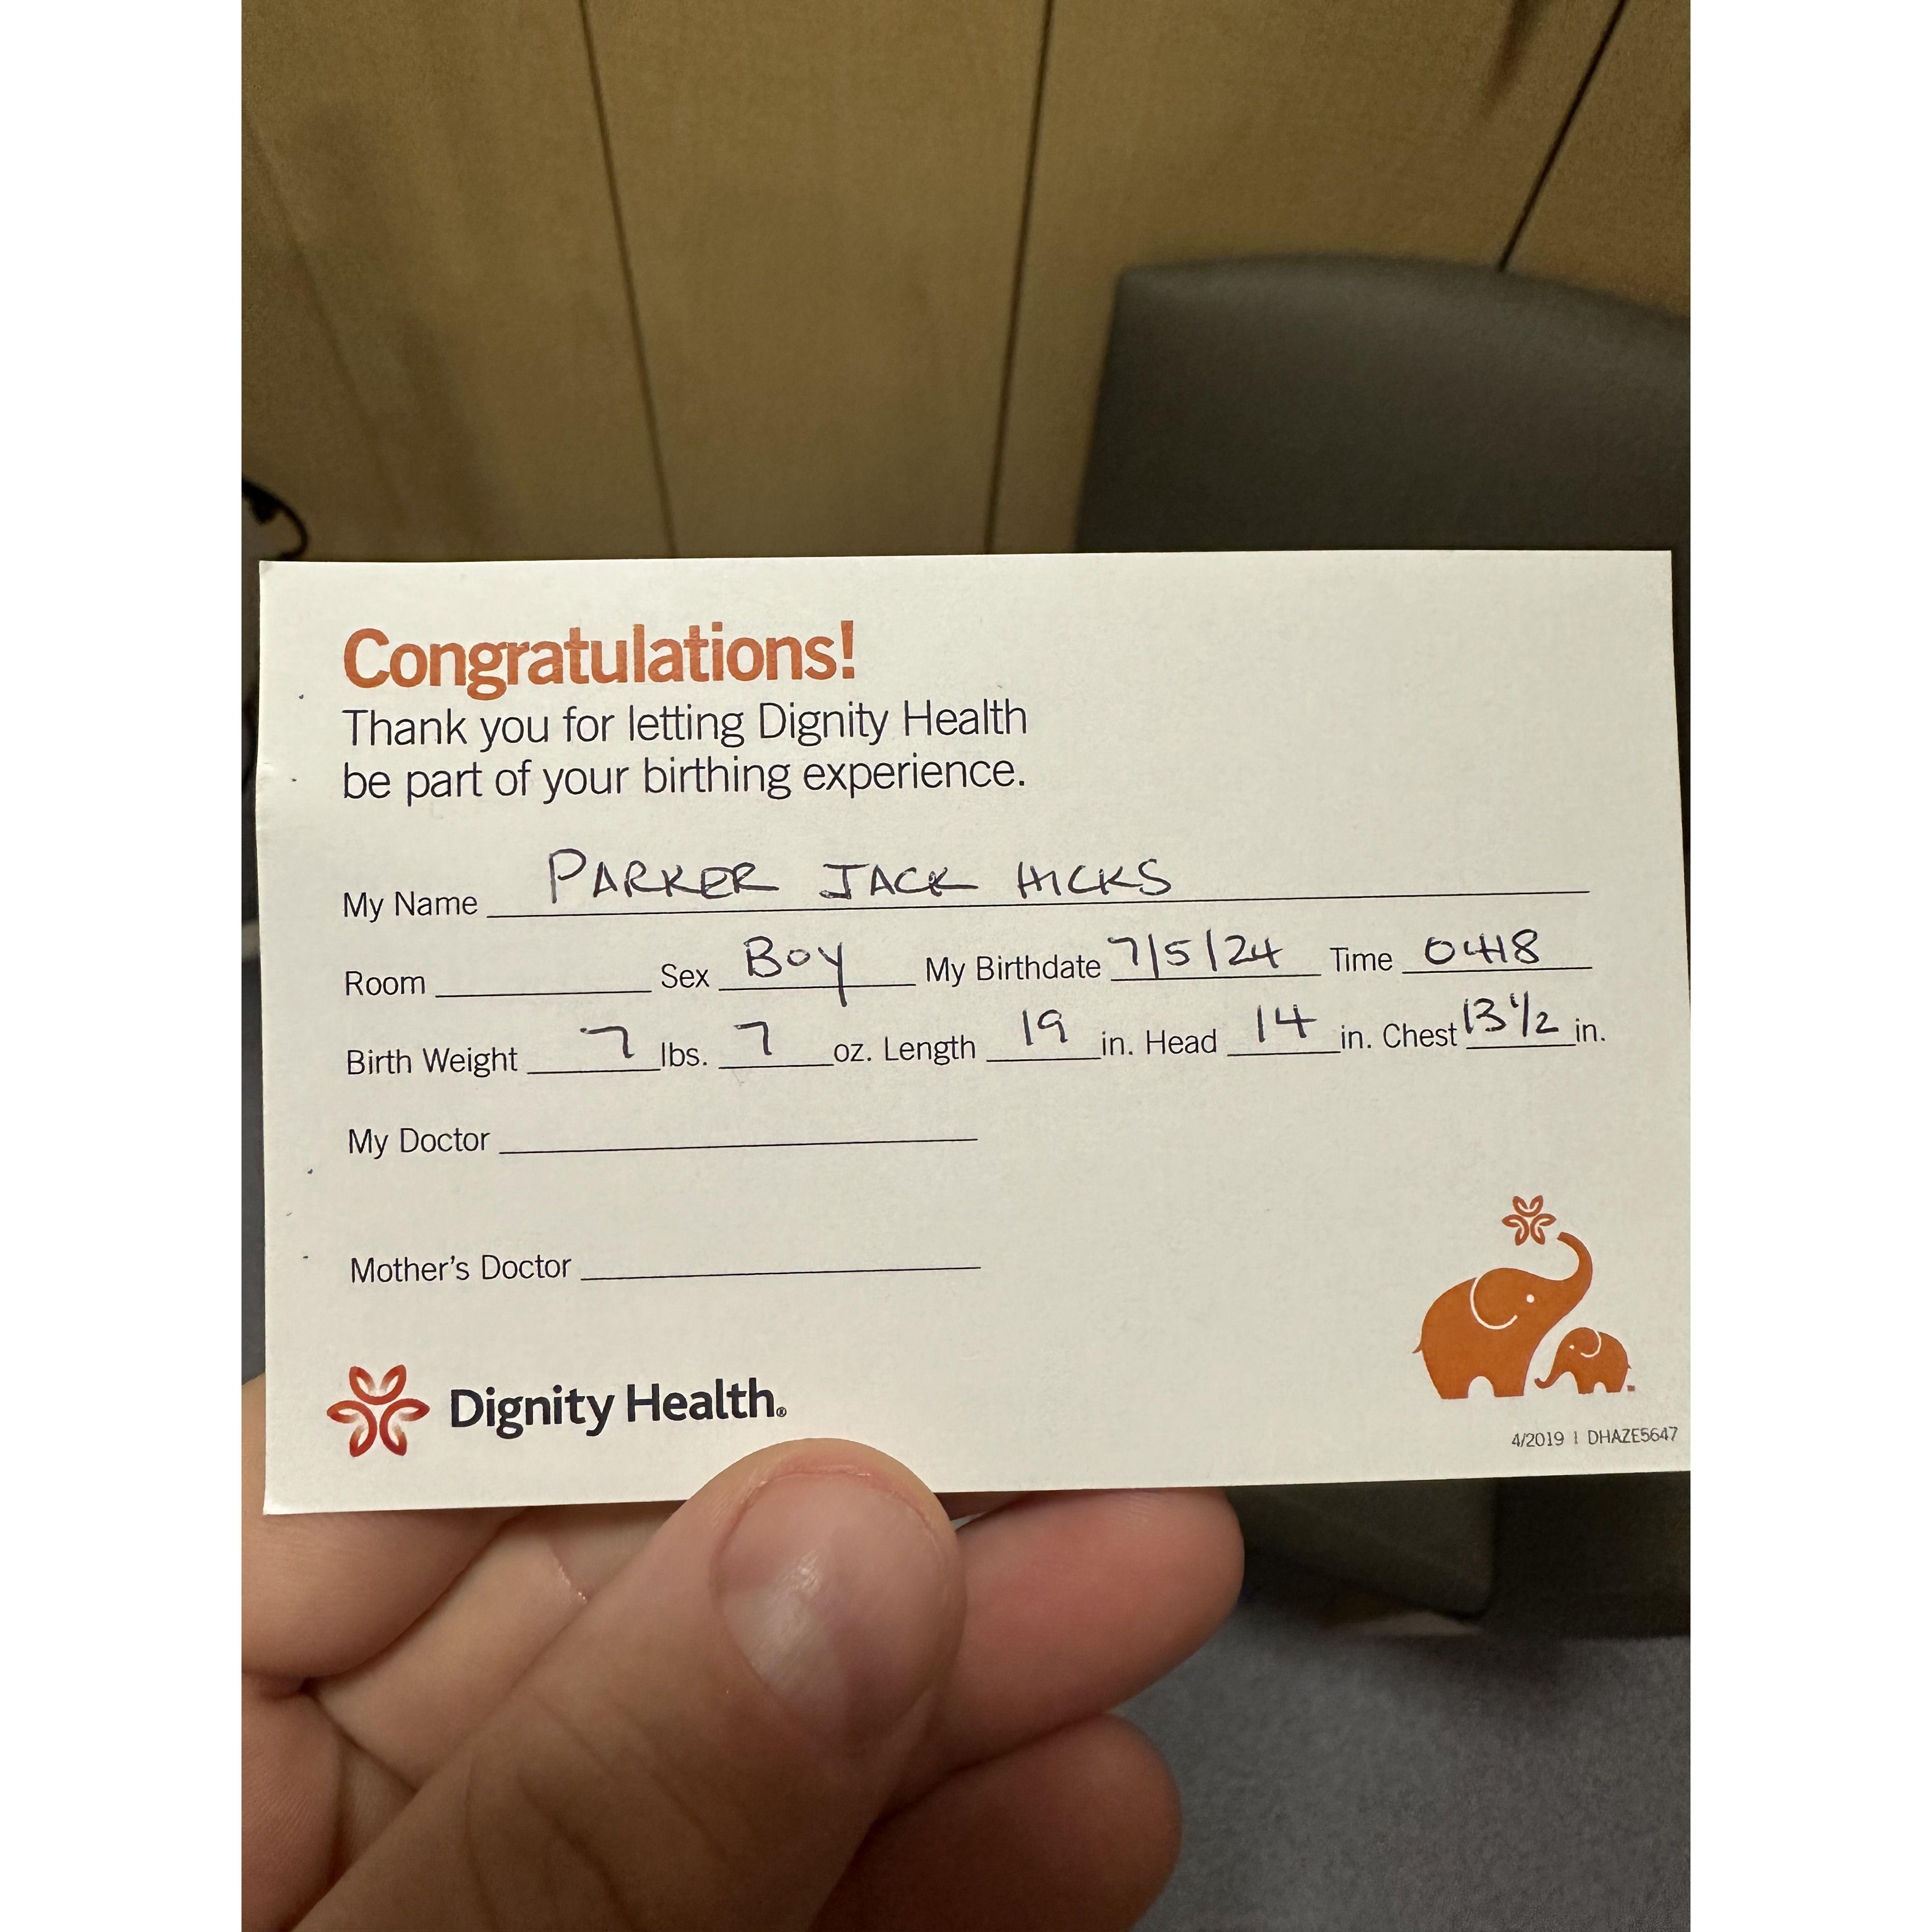 Congratulations!
Thank you for letting Dignity Health
be part of your birthing experience.
My Name PARKER JACK HICKS
Room Sex BOY My Birthdate 7/5/24 Time 0418
Birth Weight 7 lbs. 7 oz. Length 19 in. Head 14 in. Chest 13 1/2 in.
My Doctor
Mother's Doctor
Dignity Health®
4/2019 | DHAZE5647